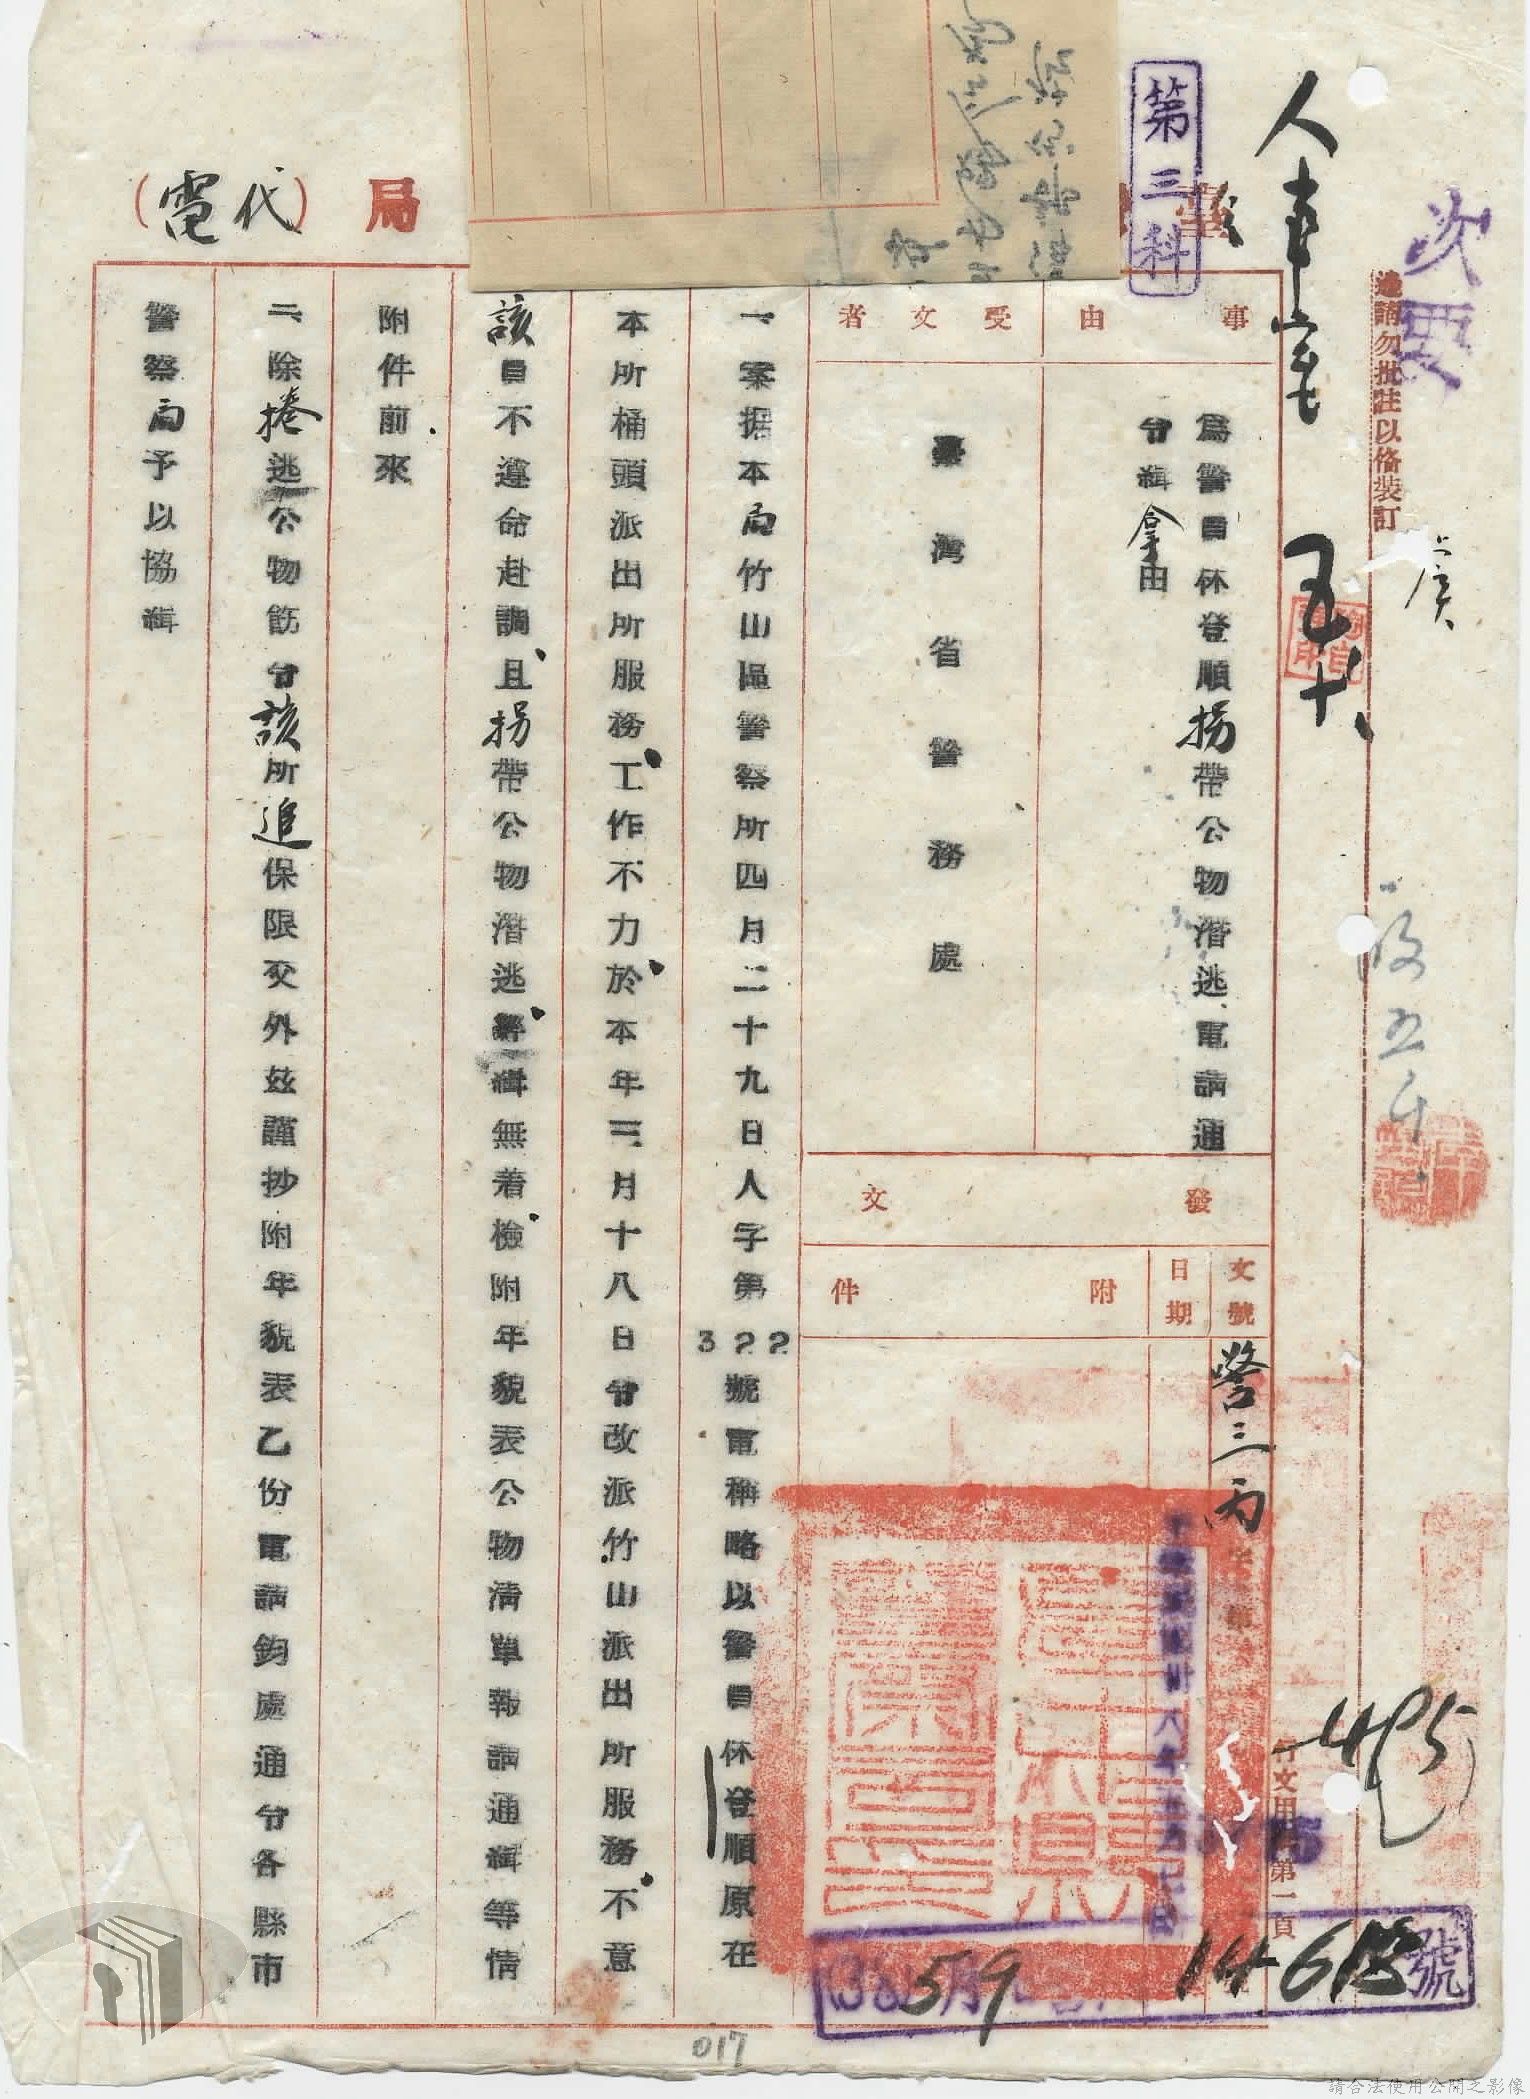 次要
邊請勿批註以俻裝訂
人事室
第三科
臺
局
(代電)
事由
為警員林登順拐帶公物潛逃電請通
令緝拿由
受文者
臺灣省警務處
發文
文號
警三丙
日期
附件
行文用紙第一頁
一、案据本局竹山區警察所四月二十九日人字第322號電稱略以警員林登順原在
本所桶頭派出所服務工作不力於本年三月十八日令改派竹山派出所服務不意
該員不遵命赴調且拐帶公物潛逃經緝無着檢附年貌表公物清單報請通緝等情
附件前來
二、除捲逃公物飭令該所追保限交外玆謹抄附年貌表乙份電請鈞處通令各縣市
警察局予以協緝
(38)5月9
14613號
017
請合法使用公開之影像